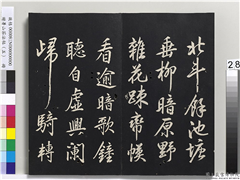 北斗録池塘
垂柳暗原野
雜花踈帶幙
看逾暗歌鐘
聽自虛興闌
歸騎轉
28